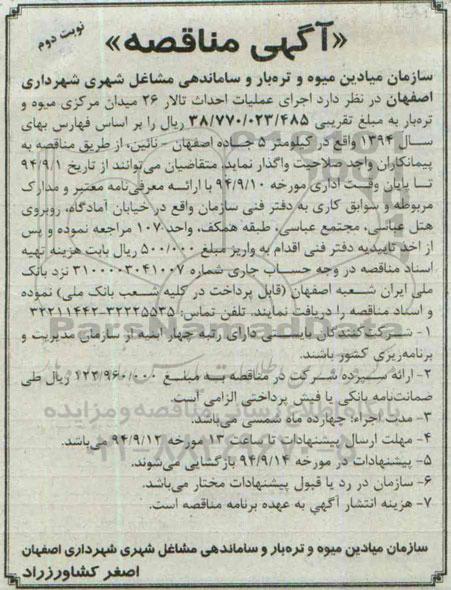 نوبت دوم
«آگهی مناقصه»
سازمان میادین میوه و تره‌بار و ساماندهی مشاغل شهری شهرداری
اصفهان در نظر دارد اجرای عملیات احداث تالار ۲۶ میدان مرکزی میوه و
تره‌بار به مبلغ تقریبی ۳۸/۷۷۰/۰۲۳/۴۸۵ ریال را بر اساس فهارس بهای
سال ۱۳۹۴ واقع در کیلومتر ۵ جاده اصفهان - نائین، از طریق مناقصه به
پیمانکاران واجد صلاحیت واگذار نماید. متقاضیان می‌توانند از تاریخ ۹۴/۹/۱
تا پایان وقت اداری مورخه ۹۴/۹/۱۰ با ارائه معرفی‌نامه معتبر و مدارک
مربوطه و سوابق کاری به دفتر فنی سازمان واقع در خیابان آمادگاه، روبروی
هتل عباسی، مجتمع عباسی، طبقه همکف، واحد ۱۰۷ مراجعه نموده و پس
از اخذ تاییدیه دفتر فنی اقدام به واریز مبلغ ۵۰۰/۰۰۰ ریال بابت هزینه تهیه
اسناد مناقصه در وجه حساب جاری شماره ۳۱۰۰۰۰۳۰۴۱۰۰۷ نزد بانک
ملی ایران شعبه اصفهان (قابل پرداخت در کلیه شعب بانک ملی) نموده
و اسناد مناقصه را دریافت نمایند. تلفن تماس: ۳۲۲۲۵۵۳۵-۳۲۲۱۱۴۴۲
۱- شرکت‌کنندگان بایستی دارای رتبه چهار ابنیه از سازمان مدیریت و
برنامه‌ریزی کشور باشند.
۲- ارائه سپرده شرکت در مناقصه به مبلغ ۱۲۳/۹۶۰/۰۰۰ ریال طی
ضمانت‌نامه بانکی یا فیش پرداختی الزامی است.
۳- مدت اجراء: چهارده ماه شمسی می‌باشد.
۴- مهلت ارسال پیشنهادات تا ساعت ۱۳ مورخه ۹۴/۹/۱۲ می‌باشد.
۵- پیشنهادات در مورخه ۹۴/۹/۱۴ بازگشایی می‌شوند.
۶- سازمان در رد یا قبول پیشنهادات مختار می‌باشد.
۷- هزینه انتشار آگهی به عهده برنامه مناقصه است.
سازمان میادین میوه و تره‌بار و ساماندهی مشاغل شهری شهرداری اصفهان
اصغر کشاورزراد
ParsNamadData